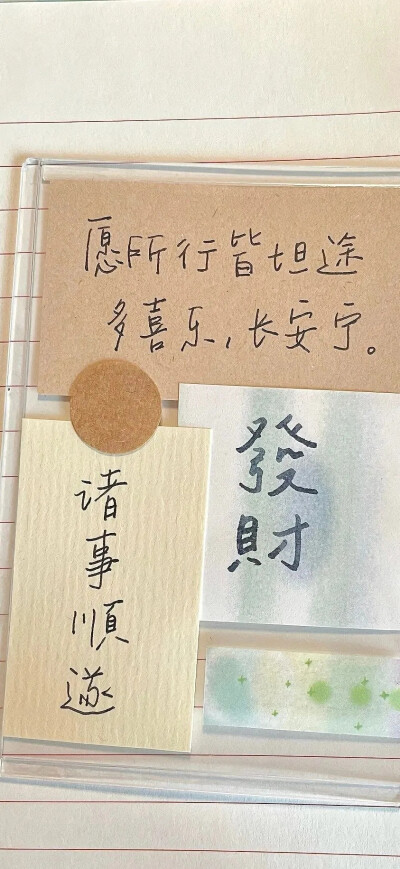 愿所行皆坦途
多喜乐,长安宁。
發財
诸事順遂